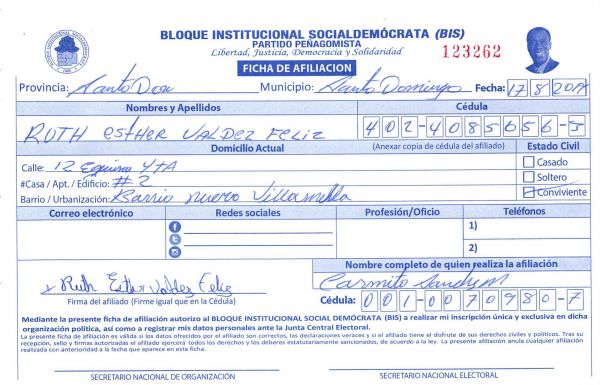 BLOQUE INSTITUCIONAL SOCIALDEMÓCRATA (BIS)
PARTIDO PEÑAGOMISTA
Libertad, Justicia, Democracia y Solidaridad
123262
FICHA DE AFILIACION
Provincia: Santo Dom Municipio: Santo Domingo Fecha: 17/8/2019
Nombres y Apellidos Cédula
RUTH esther VALDEZ Feliz 402-4085656-5
Domicilio Actual (Anexar copia de cédula del afiliado) Estado Civil
Calle: 12 Esquina 4TA Casado
#Casa / Apt. / Edificio: #2 Soltero
Barrio / Urbanización: Barrio nuevo Villa mella Conviviente
Correo electrónico Redes sociales Profesión/Oficio Teléfonos
1)
2)
Nombre completo de quien realiza la afiliación
Ruth Ester Valdez Feliz Carmito
Firma del afiliado (Firme igual que en la Cédula) Cédula: 001-0070980-7
Mediante la presente ficha de afiliación autorizo al BLOQUE INSTITUCIONAL SOCIAL DEMÓCRATA (BIS) a realizar mi inscripción única y exclusiva en dicha
organización política, así como a registrar mis datos personales ante la Junta Central Electoral.
La presente ficha de afiliación es válida si los datos ofrecidos por el afiliado son correctos, las declaraciones veraces y si el afiliado tiene el disfrute de sus derechos civiles y políticos. Tras su
recepción, sello y firmas autorizadas el afiliado ejercerá todos los derechos y los deberes estatutariamente sancionados, de acuerdo a la ley. La presente afiliación anula cualquier afiliación
realizada con anterioridad a la fecha que aparece en esta ficha.
SECRETARIO NACIONAL DE ORGANIZACIÓN SECRETARIO NACIONAL ELECTORAL